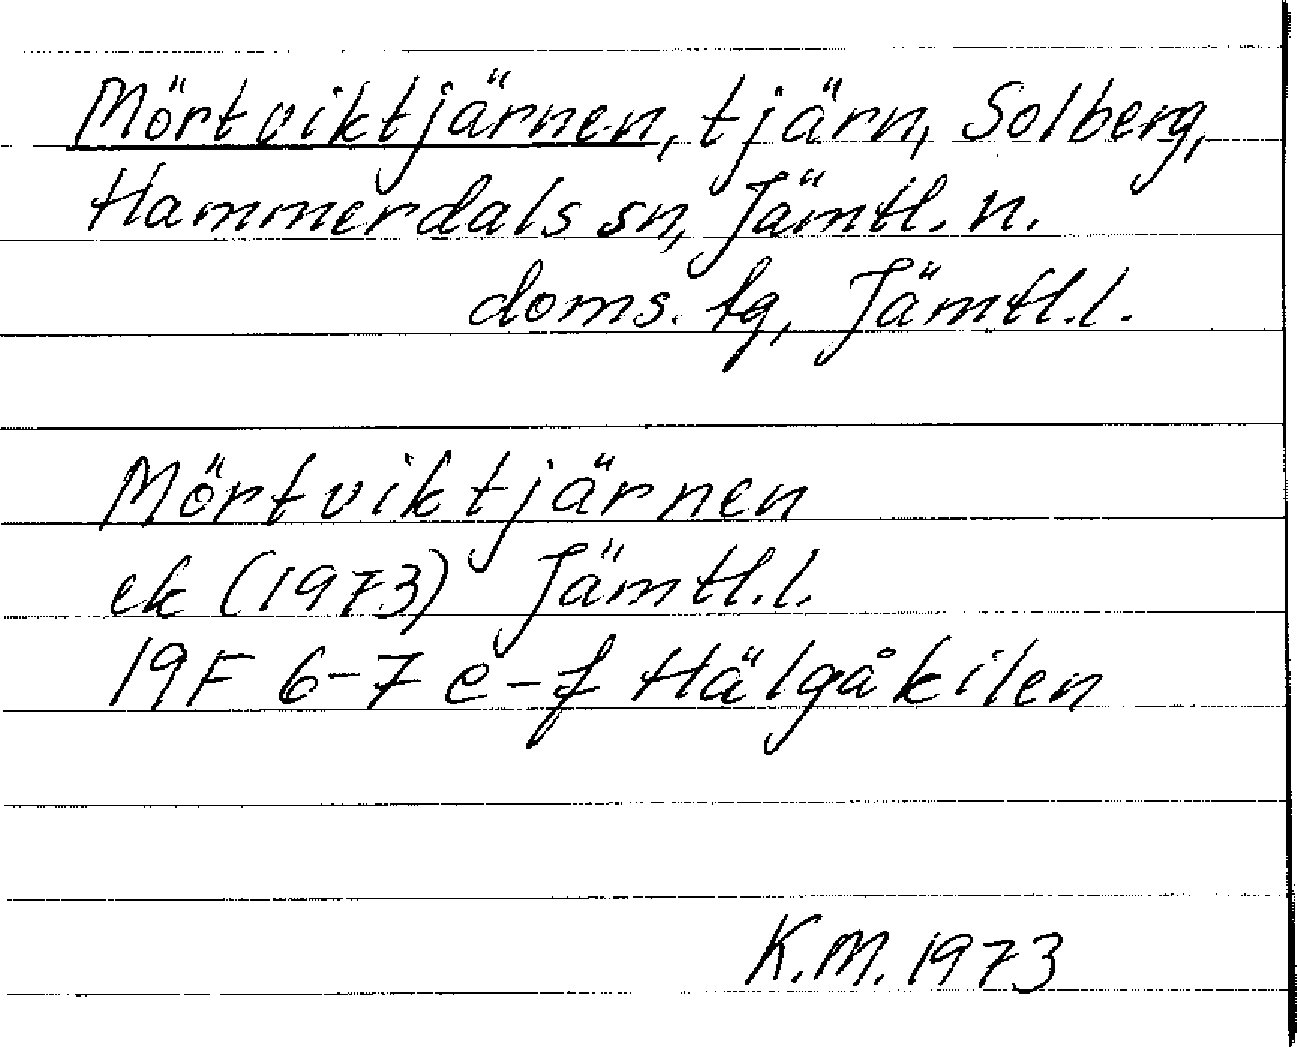 Mörtviktjärnen, tjärn, Solberg,
Hammerdals sn, Jämtl. n.
doms. tg, Jämtl.l.
Mörtviktjärnen
ek (1973) Jämtl.l.
19F 6-7 e-f Hälgåkilen
K.M. 1973